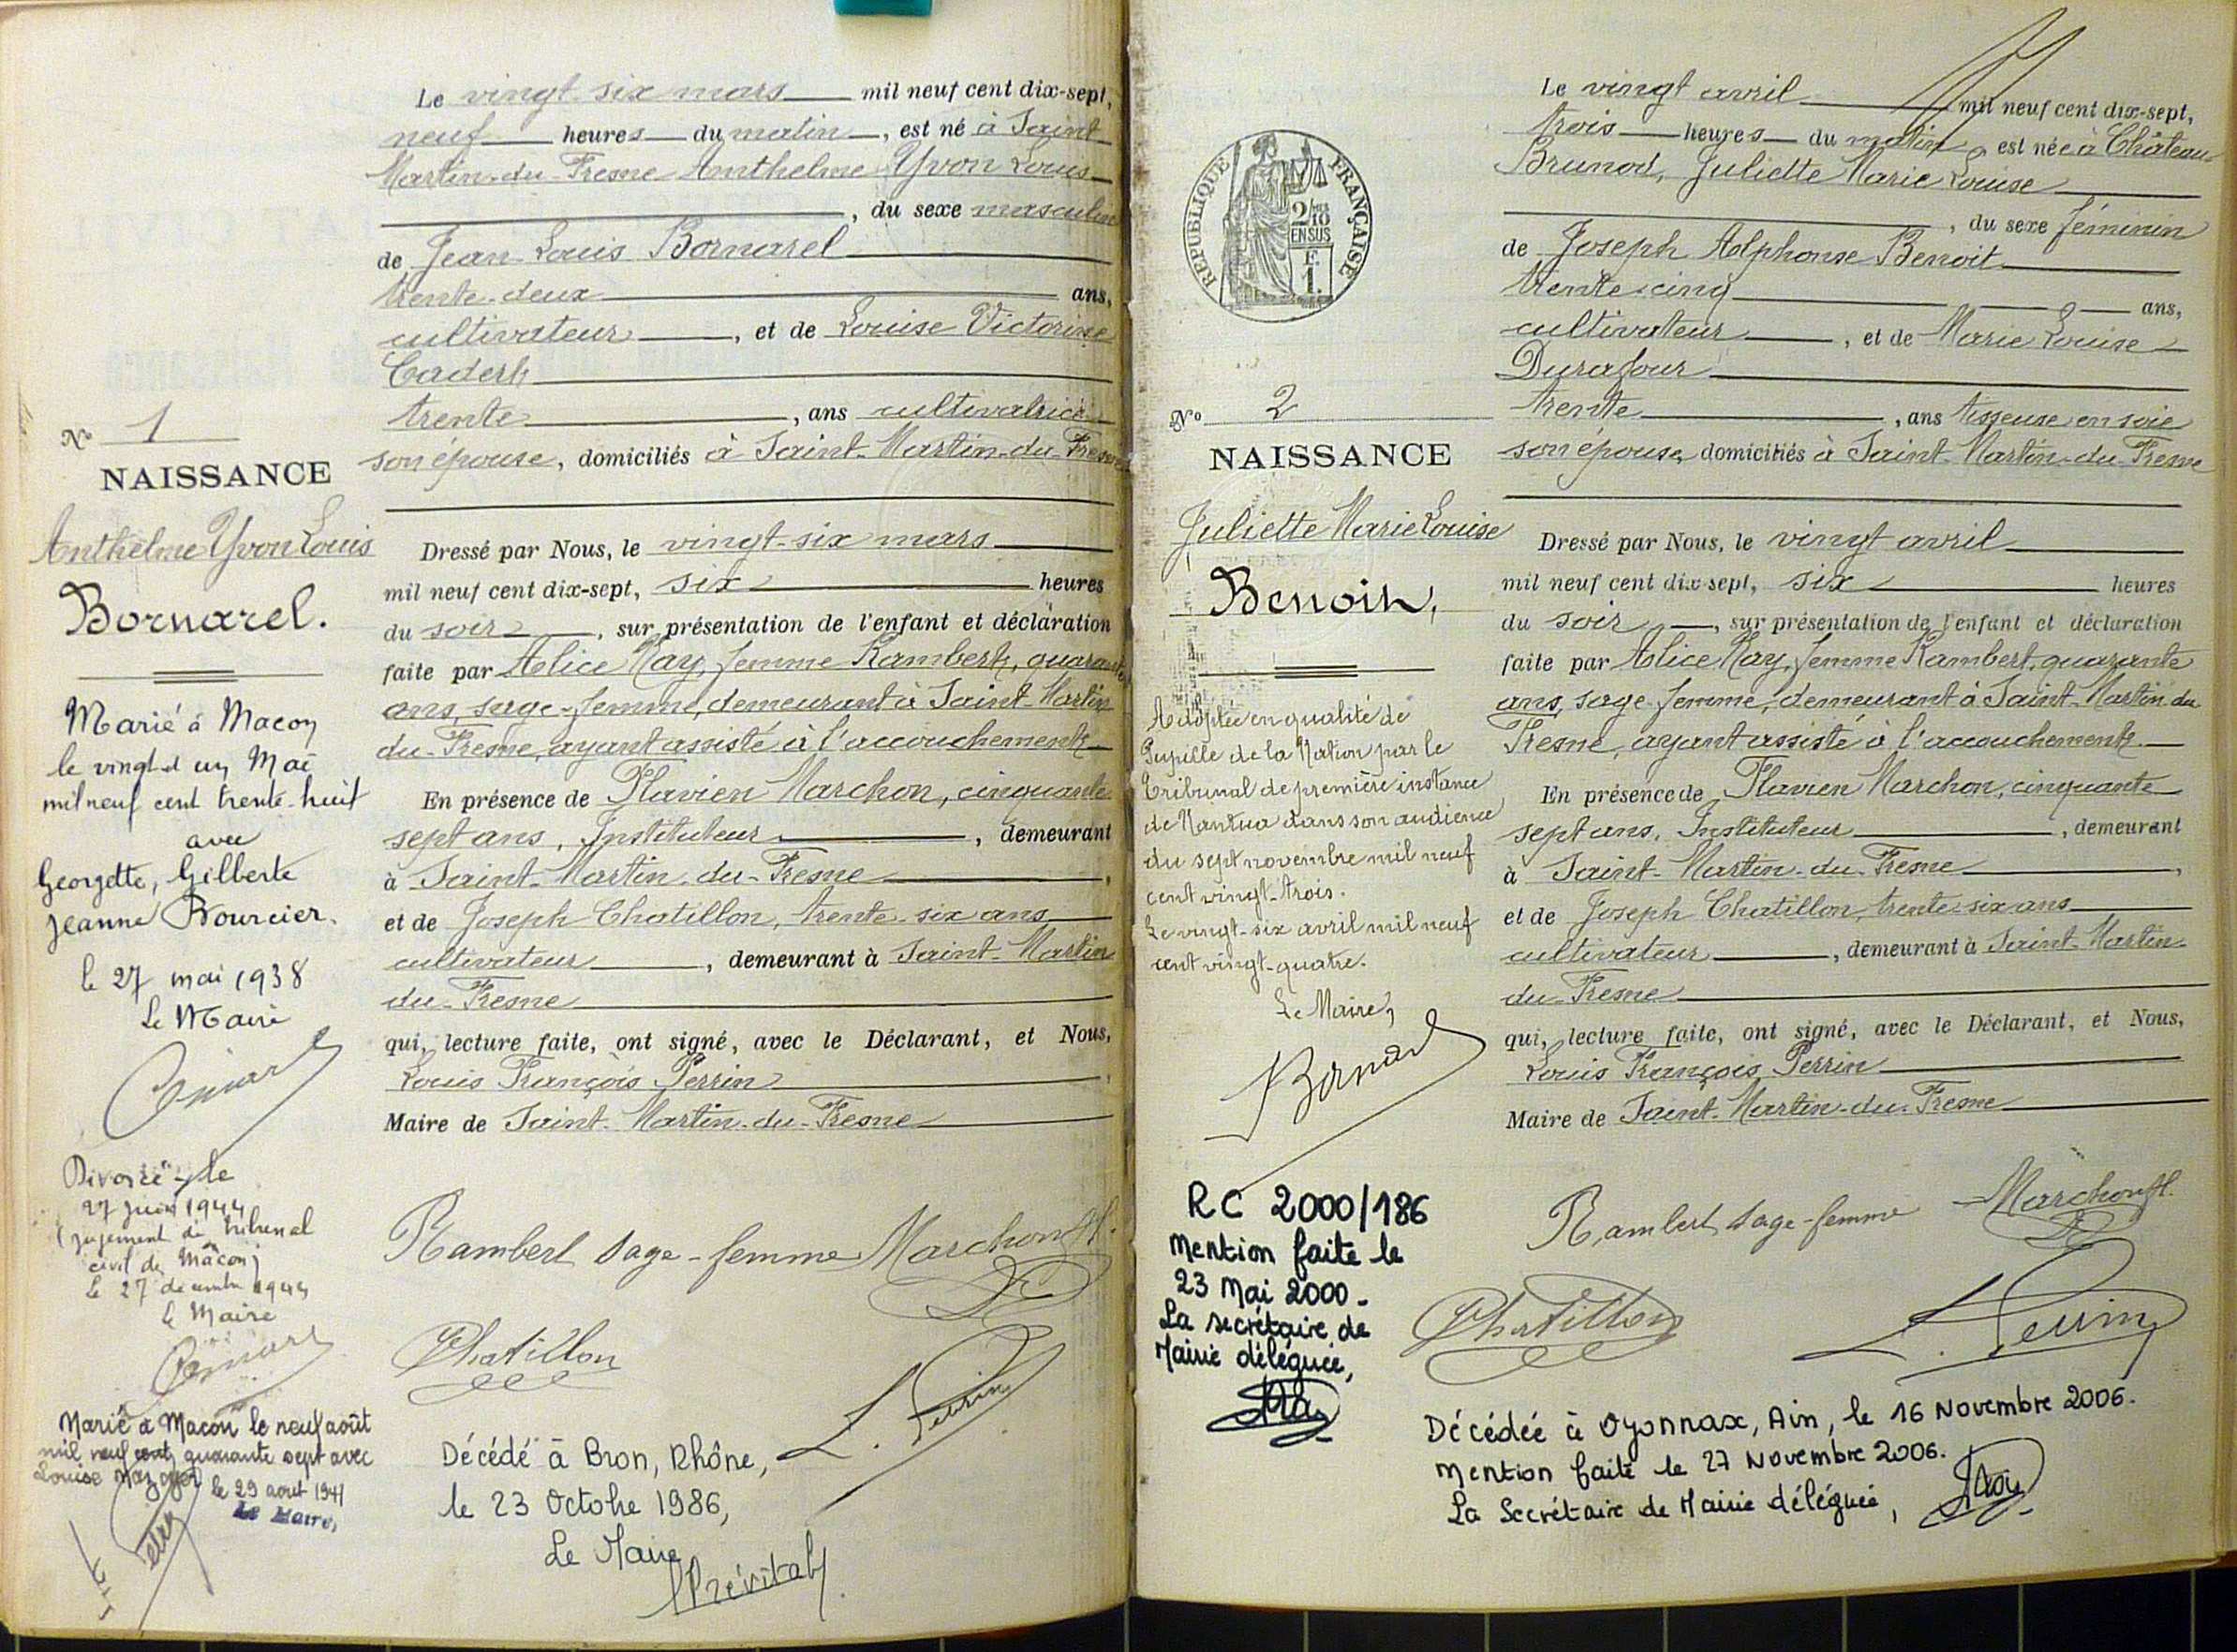 Le vingt-six mars mil neuf cent dix-sept,
neuf heures du matin, est né à Saint
Martin-du-Fresne Anthelme Yvon Louis
, du sexe masculin
de Jean Louis Bornarel
trente-deux ans,
cultivateur, et de Louise Victorine
Cadert
trente, ans cultivatrice
son épouse, domiciliés à Saint-Martin-du-Fresne
Nº 1
NAISSANCE
Anthelme Yvon Louis
Bornarel.
Marié à Macon
le vingt et un Mai
mil neuf cent trente-huit
avec
Georgette, Gilberte
Jeanne Bourcier.
le 27 mai 1938
Le Maire
Divorcé le
27 juin 1944
(jugement du tribunal
civil de Macon)
le 27 décembre 1944
le Maire
Marié à Macon le neuf août
mil neuf cent quarante sept avec
Louise
le 29 aout 1947
Le Maire,
Dressé par Nous, le vingt-six mars
mil neuf cent dix-sept, six heures
du soir, sur présentation de l'enfant et déclaration
faite par Alice Ray, femme Rambert, quarante
ans, sage-femme, demeurant à Saint-Martin
du-Fresne, ayant assisté à l'accouchement
En présence de Flavien Marchon, cinquante
sept ans, Instituteur, demeurant
à Saint-Martin-du-Fresne,
et de Joseph Chatillon, trente-six ans
cultivateur, demeurant à Saint-Martin
du-Fresne
qui, lecture faite, ont signé, avec le Déclarant, et Nous,
Louis François Perrin,
Maire de Saint-Martin-du-Fresne
Rambert sage-femme Marchon fl.
Chatillon L. Perrin
Décédé à Bron, Rhône,
le 23 Octobre 1986,
Le Maire
Prévitaly
RÉPUBLIQUE FRANÇAISE
2/10
EN SUS
F.
1.
Nº 2
NAISSANCE
Juliette Marie Louise
Benoit,
Adoptée en qualité de
Pupille de la Nation par le
Tribunal de première instance
de Nantua dans son audience
du sept novembre mil neuf
cent vingt-trois.
Le vingt-six avril mil neuf
cent vingt-quatre.
Le Maire,
RC 2000/186
Mention faite le
23 Mai 2000 -
La secrétaire de
Mairie déléguée,
Le vingt avril mil neuf cent dix-sept,
trois heures du matin, est née à Château
Brunod, Juliette Marie Louise
, du sexe féminin
de Joseph Alphonse Benoit
trente-cinq ans,
cultivateur, et de Marie Louise
Durafour
trente, ans tisseuse en soie
son épouse, domiciliés à Saint-Martin-du-Fresne
Dressé par Nous, le vingt avril
mil neuf cent dix-sept, six heures
du soir, sur présentation de l'enfant et déclaration
faite par Alice Ray, femme Rambert, quarante
ans, sage-femme, demeurant à Saint-Martin-du
Fresne, ayant assisté à l'accouchement
En présence de Flavien Marchon, cinquante
sept ans, Instituteur, demeurant
à Saint-Martin-du-Fresne,
et de Joseph Chatillon, trente-six ans
cultivateur, demeurant à Saint-Martin
du-Fresne
qui, lecture faite, ont signé, avec le Déclarant, et Nous,
Louis François Perrin
Maire de Saint-Martin-du-Fresne
Rambert sage-femme Marchon fl.
Chatillon L. Perrin
Décédée à Oyonnax, Ain, le 16 Novembre 2006.
Mention faite le 27 Novembre 2006.
La Secrétaire de Mairie déléguée,